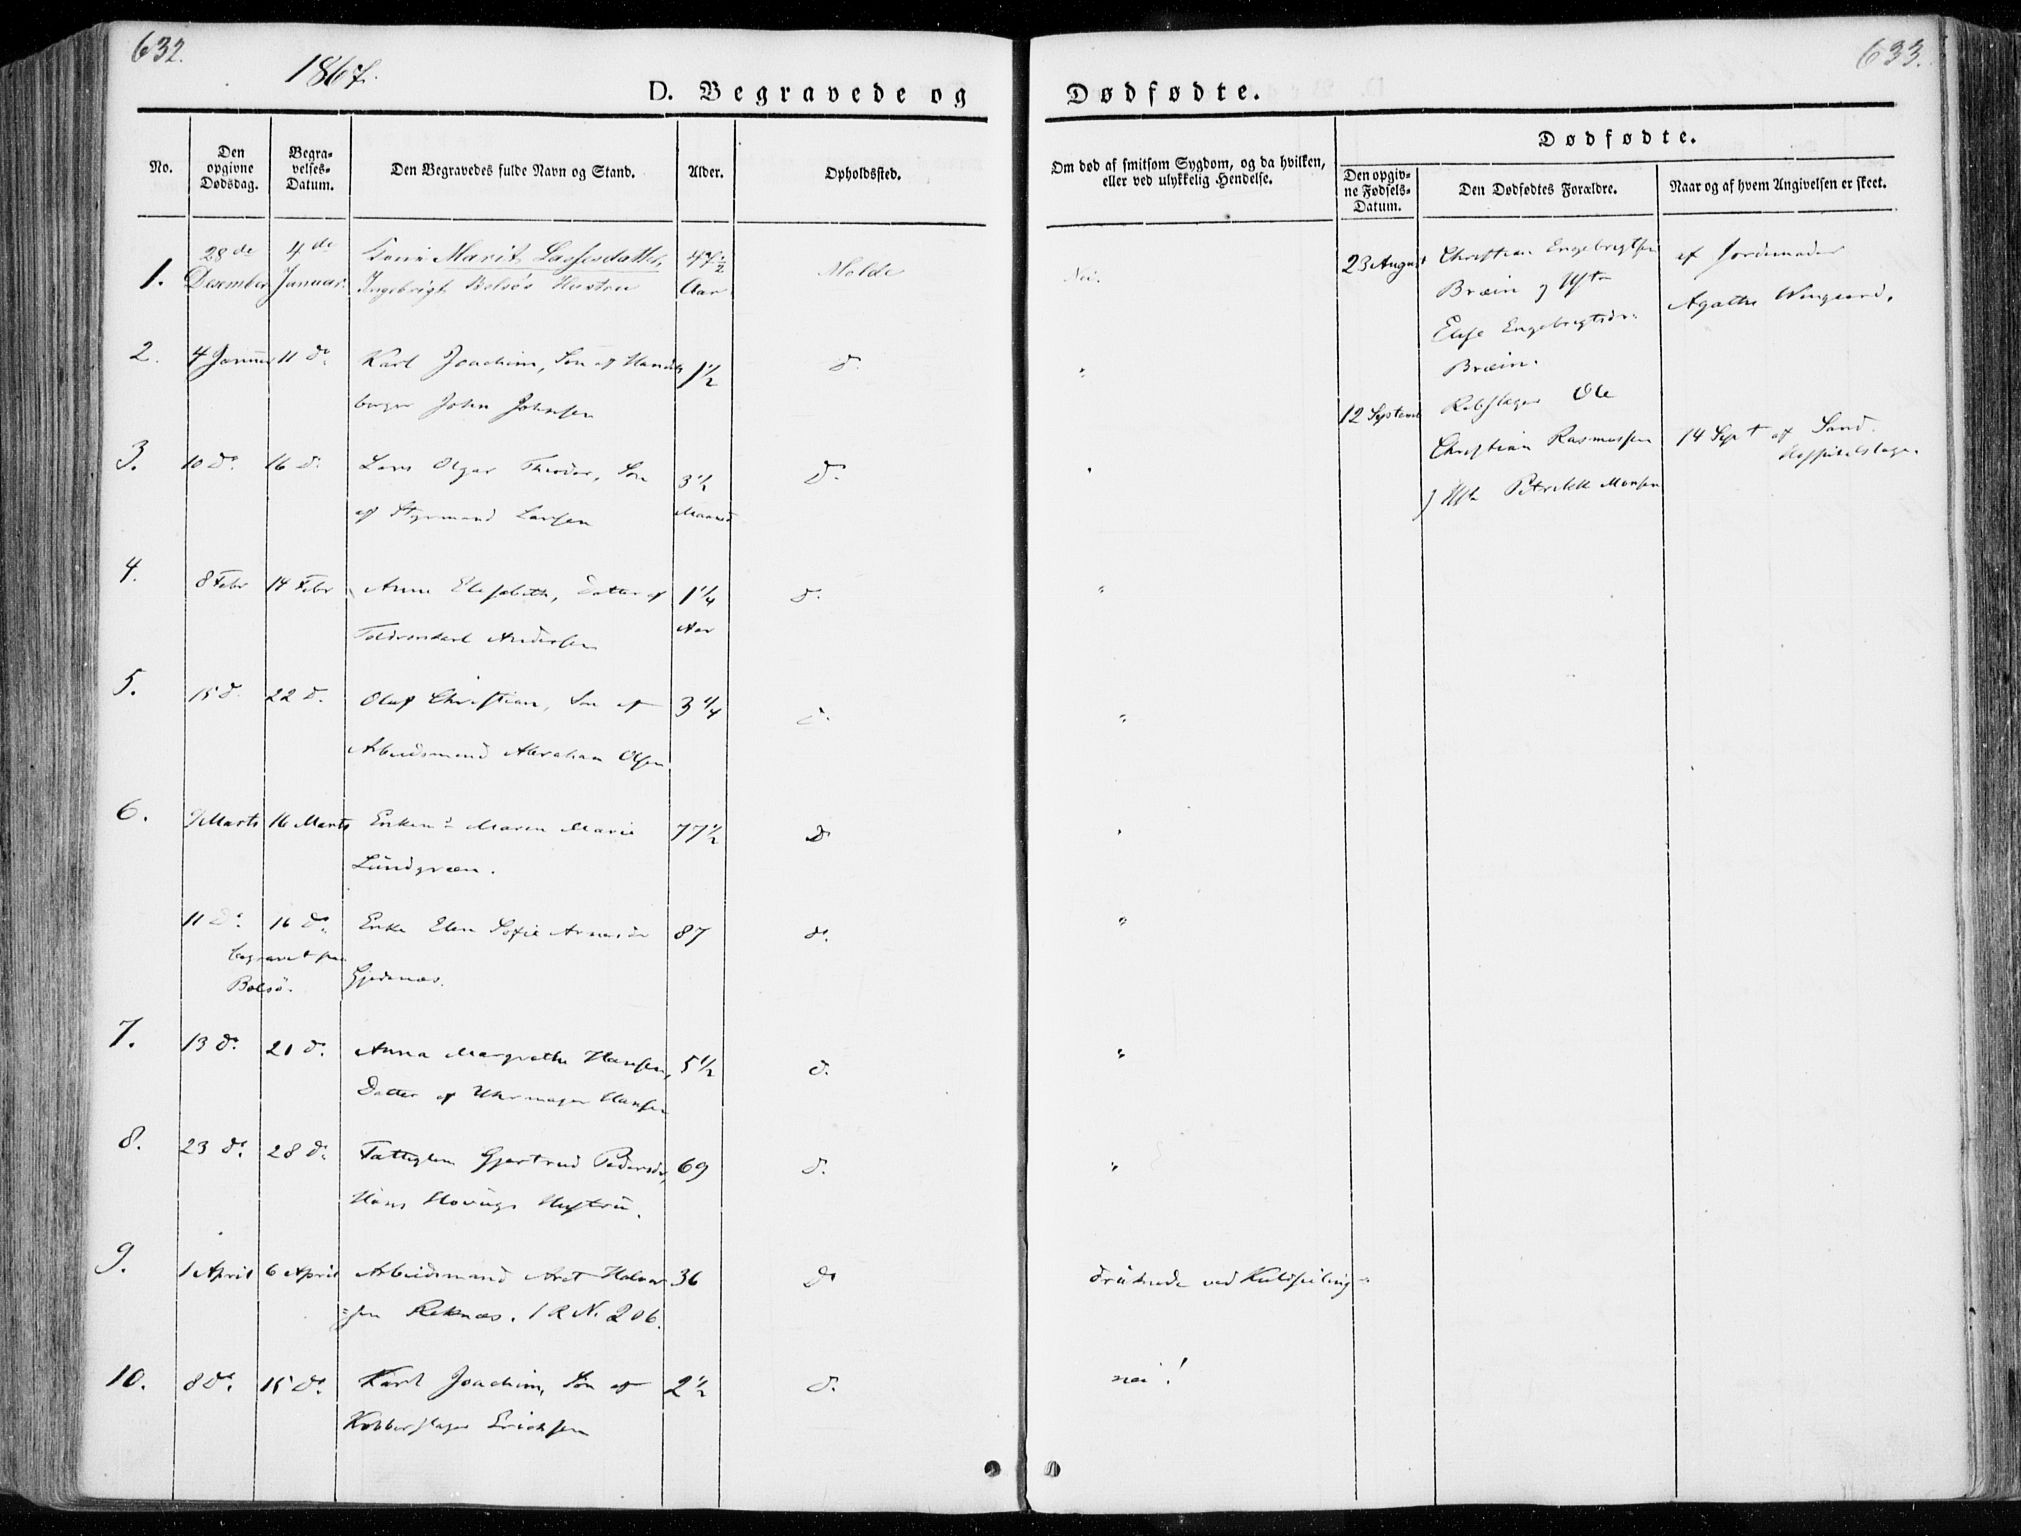 632.
1867.
D. Begravede og
No.
Den opgivne Dødsdag.
Begravelses-Datum.
Den Begravedes fulde Navn og Stand.
Alder.
Opholdssted.
1. 28de 4de Marit Lassesdatter, 47 1/2 Molde
Desember Januar. Ingebrigt Bolsøs Hustru Aar
2. 4 Januar 11 do. Karl Joachim, Søn af Hand- 1 1/2 do.
borger John Johnsen
3. 10 do. 16 do. Lars Olgar Theodor, Søn 3 1/2 Do.
af Styrmand Larsen Maaned
4. 8 Febr 14 Febr Anne Elisabeth, Datter af 1 1/4 do.
Toldroerkarl Andersen Aar
5. 15 do. 22 do. Oluf Christian, Søn af 3 1/4 do.
Arbeidsmand Abraham Olsen
6. 9 Marts 16 Marts Enkem: Maren Marie 77 1/2 Do
Lundgreen.
11 Do. 16 do. Enke Elen Sofie Arnesdr 87 do.
begravet paa
Bolsø. Gjedenæs.
7. 13 do. 20 do. Anna Margrethe Hansen, 5 1/2 do.
Datter af Uhrmager Hansen
8. 23 do. 28 do. Fattiglem Gjertrud Pedersdr, 69 do.
Hans Hovings Hustru.
9. 1 April 6 April Arbeidsmand Arnt Halvor- 36 Do
=sen Reknæs. 1 R N. 206.
10. 8 Do. 15 Do. Karl Joachim, Søn af 2 1/2 do.
Kobberslager Erichsen
633.
Dødfødte.
Om død af smitsom Sygdom, og da hvilken,
eller ved ulykkelig Hendelse.
Dødfødte.
Den opgivne Fødsels-Datum.
Den Dødfødtes Forældre.
Naar og af hvem Angivelsen er skeet.
Nei.
"
"
"
"
"
"
"
"
druknede ved Kuldseiling
nei!
23 August Christian Engebrigtsen af Jordemoder
Bræin og Hstr Agathe
Else Engebrigtsdr.
Bræin.
12 Septemb Rebslager Ole
Christian Rasmussen 14 Sept af Sand.
og Hstr Petrikke Monsen Hospitalslæge.